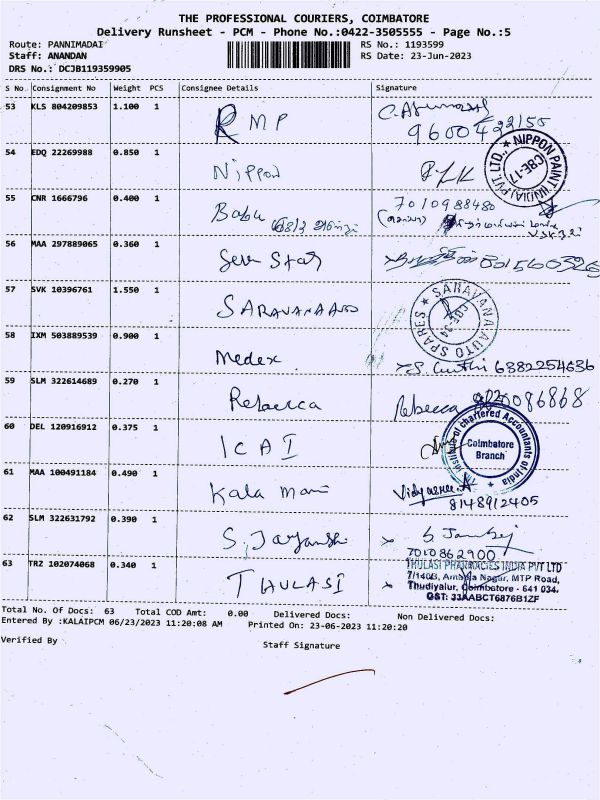 THE PROFESSIONAL COURIERS, COIMBATORE
Delivery Runsheet - PCM - Phone No.:0422-3505555 - Page No.:5
Route: PANNIMADAI RS No.: 1193599
Staff: ANANDAN RS Date: 23-Jun-2023
DRS No.: DCJB119359905
S No. Consignment No Weight PCS Consignee Details Signature
53 KLS 804209853 1.100 1 RMP
9600422155
54 EDQ 22269988 0.850 1 Nippon
NIPPON PAINT (INDIA) PVT. LTD., CBE-17
55 CNR 1666796 0.400 1 Babu 7010988480
56 MAA 297889065 0.360 1 Seven Star 8015600326
57 SVK 10396761 1.550 1 SARAVANAAND
SARAVANA AUTO SPARES CBE-34
58 IXM 503889539 0.900 1 Medex 6382254636
59 SLM 322614689 0.270 1 Rebecca Rebecca
60 DEL 120916912 0.375 1 ICAI
The Institute of Chartered Accountants of India Coimbatore Branch
61 MAA 100491184 0.490 1 Kala Mani
8148912405
62 SLM 322631792 0.390 1 S. Jayanthi
7010862900
63 TRZ 102074068 0.340 1 THULASI
THULASI PHARMACIES INDIA PVT LTD
7/140B, Ambika Nagar, MTP Road,
Thudiyalur, Coimbatore - 641 034.
GST: 33AABCT6876B1ZF
Total No. Of Docs: 63 Total COD Amt: 0.00 Delivered Docs: Non Delivered Docs:
Entered By :KALAIPCM 06/23/2023 11:20:08 AM Printed On: 23-06-2023 11:20:20
Verified By
Staff Signature